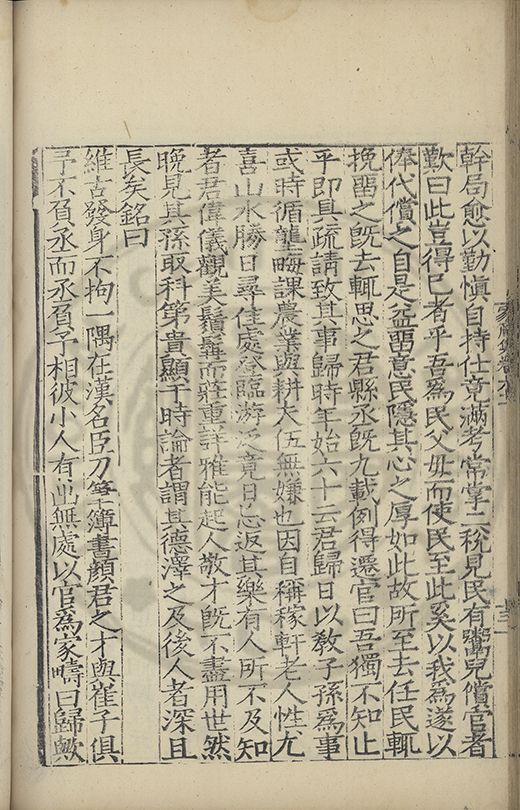 幹局愈以勤慎自持仕竟滿考常掌二稅見民有鬻兒償官者
歎曰此豈得已者乎吾為民父毋而使民至此奚以我為遂以
俸代償之自是益留意民隱其心之厚如此故所至去任民輒
挽留之既去輒思之君縣丞既九載例得遷官曰吾獨不知止
乎即具疏請致其事歸時年始六十云君歸日以教子孫為事
或時循壟畮課農業與耕夫伍無嫌也因自稱稼軒老人性尤
喜山水勝日尋佳處登臨游泛竟日忘返其樂有人所不及知
者君偉儀觀美鬚髯而莊重詳雅能起人敬才既不盡用世然
晚見其孫取科第貴顯于時論者謂其德澤之及後人者深且
長矣銘曰
維古發身不拘一隅在漢名臣刀筆簿書顏君之才與崔子俱
予不負丞而丞負予相彼小人有
無處以官為家疇曰歸歟
家藏集卷六十一